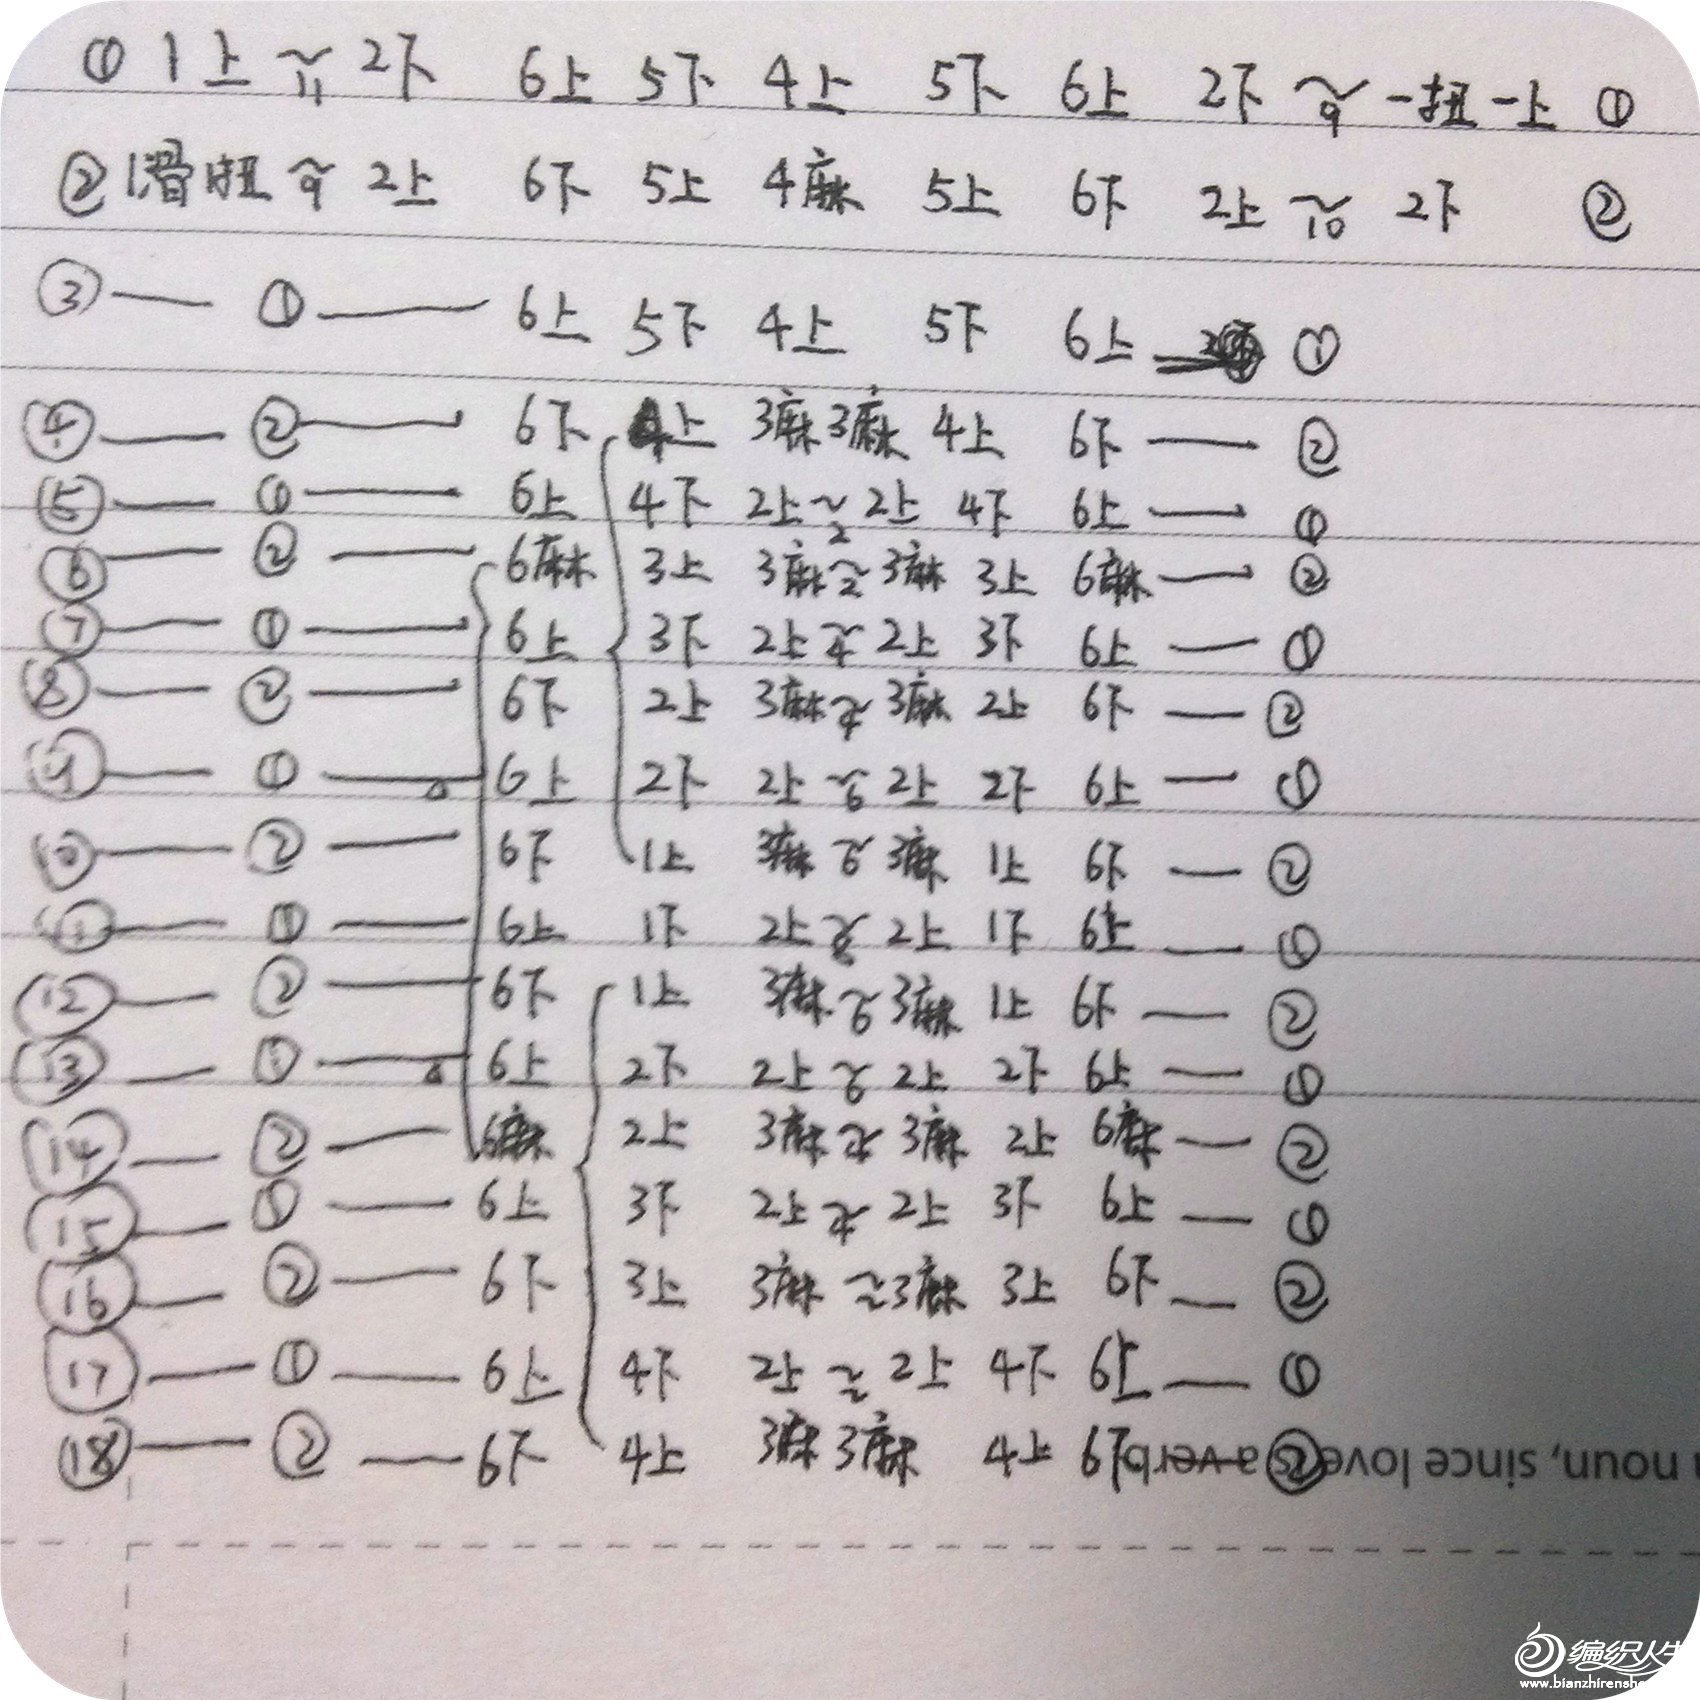 ① 1上 ~11 2下 6上 5下 4上 5下 6上 2下 ~9 一扭一上 ①
② 1滑扭 ~9 2上 6下 5上 4麻 5上 6下 2上 ~10 2下 ②
③ — ① — 6上 5下 4上 5下 6上 ①
④ — ② — 6下 4上 3麻 3麻 4上 6下 — ②
⑤ — ① — 6上 4下 2上 ~2 2上 4下 6上 — ①
⑥ — ② — 6麻 3上 3麻 ~2 3麻 3上 6麻 — ②
⑦ — ① — 6上 3下 2上 ~4 2上 3下 6上 — ①
⑧ — ② — 6下 2上 3麻 ~4 3麻 2上 6下 — ②
⑨ — ① — 6上 2下 2上 ~6 2上 2下 6上 — ①
⑩ — ② — 6下 1上 3麻 ~6 3麻 1上 6下 — ②
⑪ — ① — 6上 1下 2上 ~8 2上 1下 6上 — ①
⑫ — ② — 6下 1上 3麻 ~6 3麻 1上 6下 — ②
⑬ — ① — 6上 2下 2上 ~6 2上 2下 6上 — ①
⑭ — ② — 6麻 2上 3麻 ~4 3麻 2上 6麻 — ②
⑮ — ① — 6上 3下 2上 ~4 2上 3下 6上 — ①
⑯ — ② — 6下 3上 3麻 ~2 3麻 3上 6下 — ②
⑰ — ① — 6上 4下 2上 ~2 2上 4下 6上 — ①
⑱ — ② — 6下 4上 3麻 3麻 4上 6下 — ②
noun, since love is a verb
编织人生
www.bianzhirensh